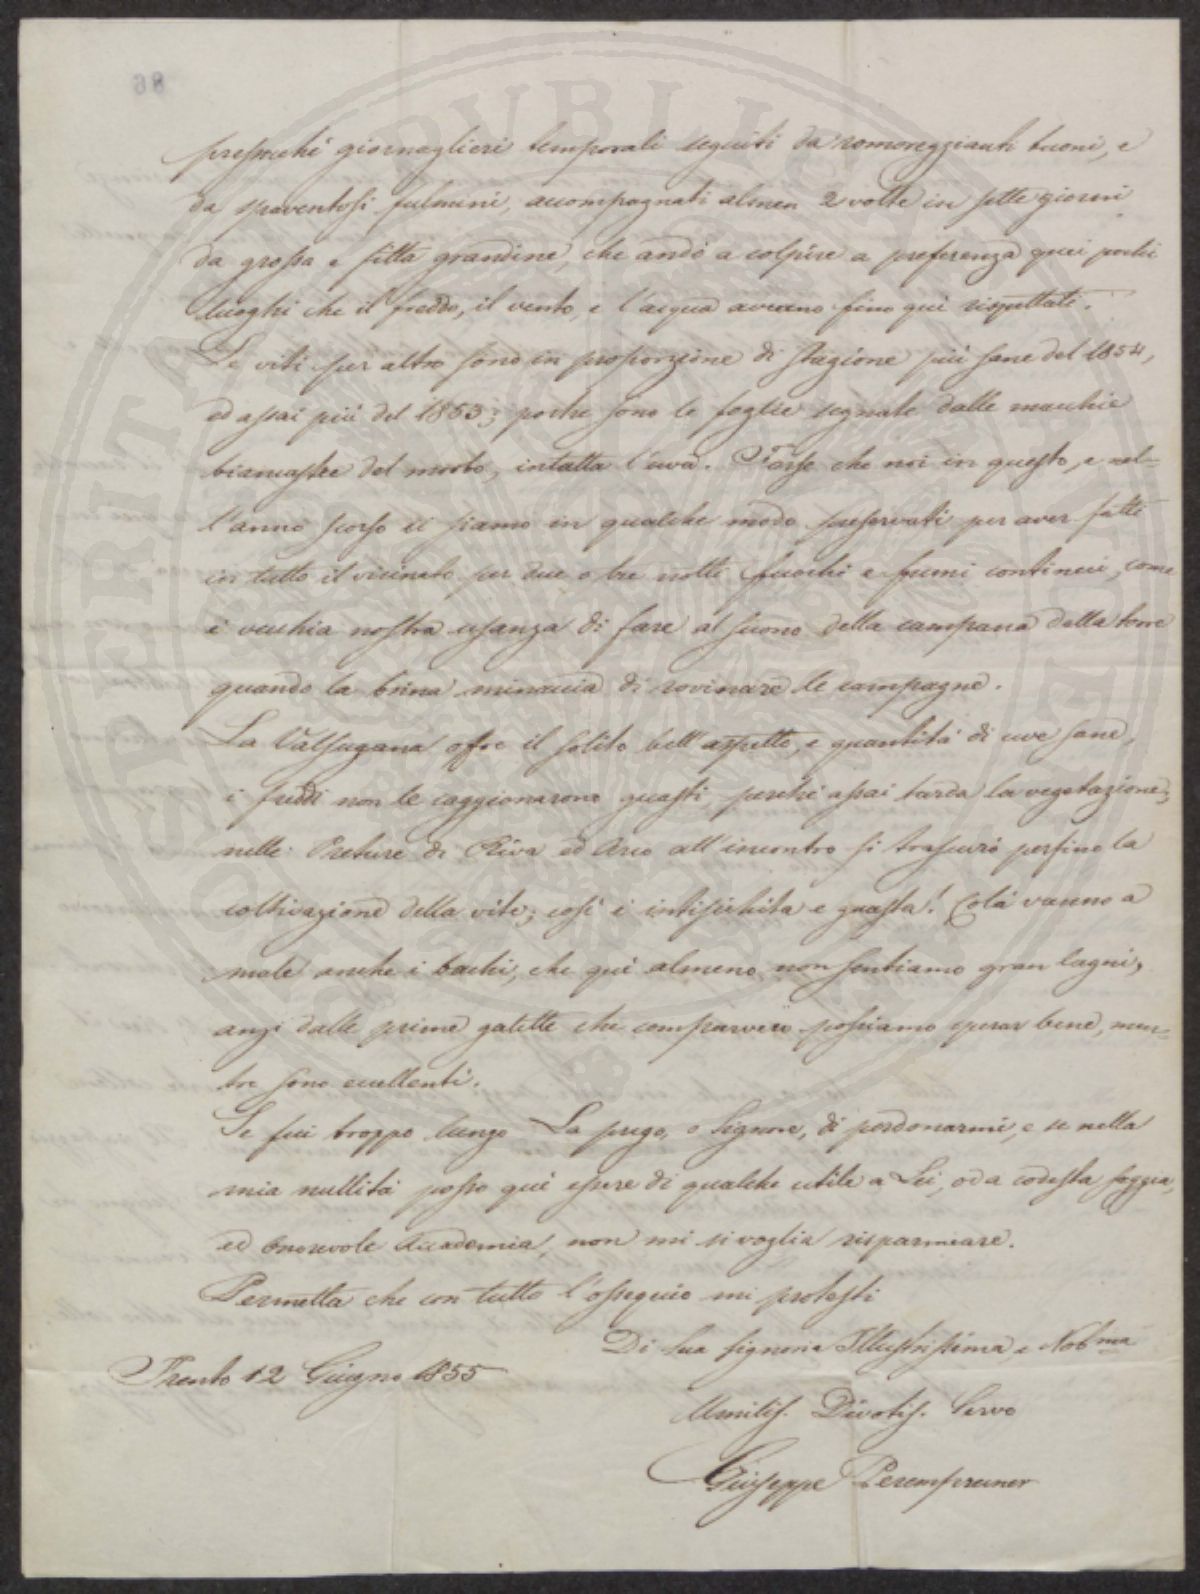 pressochè giornaglieri temporali seguiti da romoreggianti tuoni, e
da spaventosi fulmini, accompagnati almen 2 volte in sette giorni
da grossa e fitta grandine, che andò a colpire a preferenza quei pochi
luoghi che il freddo, il vento, e l'acqua aveano fino quì rispettati.
Le viti per altro sono in proporzione di stagione più sane del 1854,
ed assai più del 1853; poche sono le foglie segnate dalle macchie
biancastre del morbo, intatta l'uva. Forse che noi in questo, e nel=
l'anno scorso ci siamo in qualche modo preservati per aver fatti
in tutto il vicinato per due o tre notti fuochi e fumi continui, come
è vecchia nostra usanza di fare al suono della campana della torre
quando la brina minaccia di rovinare le campagne.
La Valsugana offre il solito bell'aspetto, e quantità di uve sane,
i freddi non le caggionarono guasti, perchè assai tarda la vegetazione;
nelle Preture di Riva ed Arco all'incontro si trascurò perfino la
coltivazione della vite; così è intisichita e guasta! Colà vanno a
male anche i bachi, che quì almeno non sentiamo gran lagni,
anzi dalle prime galette che comparvero possiamo sperar bene, men=
tre sono eccellenti.
Se fui troppo lungo La prego, o Signore, di perdonarmi, e se nella
mia nullità posso quì essere di qualche utile a Lei, od a codesta saggia,
ed Onorevole Accademia, non mi si voglia risparmiare.
Permetta che con tutto l'ossequio mi protesti
Di Sua Signoria Illustrissima, e Nobma
Trento 12 Giugno 1855
Umilis. Divotis. Servo
Giuseppe Perempruner
86